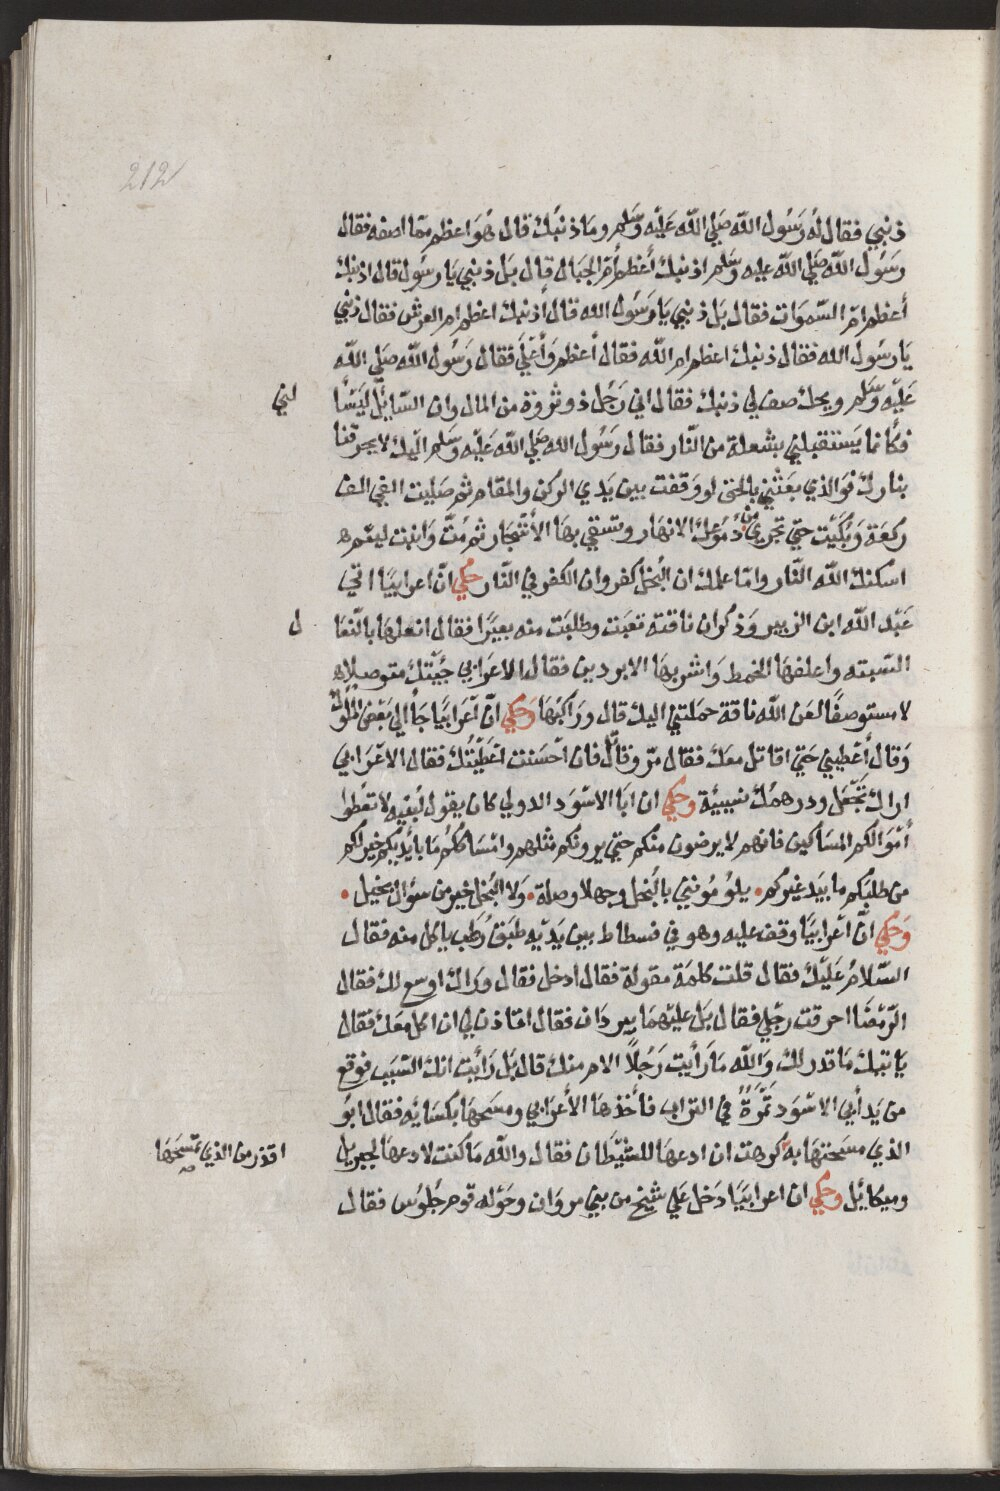 212
ذنبي فقال له رَسُول الله صَلي الله عَليْه وسَلم ومَا ذنبُك قال هُوَ اعظم ممّا اصفه فقال
رسَوُل الله صَلي الله عليه وسّلم اذنبك أعظم أم الجبَال قال بَل ذنبي يَا رسُول قال اذنبك
أعظم ام السّموَات فقال بَل ذنبي يَا رَسَوُل الله قال أذنبك اعظم ام العرش فقال ذنبي
يَا رسُول الله فقال ذنبك اعظم ام الله فقال أعظم وَأعْليَ فقال رَسُول الله صَلي الله
عَليْه وسّلم ويحك صف لي ذنبك فقال اني رَجُل ذو ثروَة من المال وان السّايل ليَسْأ
لني
فكأنما يَستقبلني بشعلة من النّار فقال رسَوُل الله صَلي الله عَليْه وسَلم اليك لا يحرقنا
بنارك فوَ الذي بعَثني بالحق لو وَقفت بين يَدي الركن والمقام ثم صَليت الفي الف
ركعَة وَبُكَيْت حَتي تجري من دُمَوعك الانهار وتسقي بهَا الأشجَار ثم مُتّ وَانت ليئم ه
اسكنك الله النّار وامّا علمك ان البُخل كفر وان الكفر في النّار حُكي انّ اعرابيًا اتي
عَبْد الله ابن الزبير وَذكر ان ناقته تعبَت وطلبَت منه بعيَرًا فقال انعلهَا بالنّعَا
ل
السّبته واعلفهَا الخمط وَاشربهَا الابردين فقال الاعرَابي جُيْتك متوصلاه
لا مستوصفًا لعَن الله ناقة حمَلتني اليك قال ورَاكبَهَا وحُكي انّ أعْرَابيًا جَأ الي بَعْض الملُوك
وَقال أعْطيني حَتي اقاتل معَك فقال مرّ وقاتل فان احْسَنت اعْطَيْتُك فقال الاعْرَابي
اراك تَجْعَل ودرهمُك نسيئة وحُكي ان ابَا الاسْوَد الدولي كان يقول لبَنيه لا تعْطوا
أمْوَالكم المسَاكين فانهم لا يرضون منكم حَتي يرونكم مثلهم وامْسَاككُم مَا بأيْديكم خير لكم
من طلبَكم ما بيَد غيركم • يلوُموُنني بالبُخل وجهلا وصلة • وَلا البُخل خير من سؤال بخيل •
وَحُكي انّ اعْرابيًا وقف عليه وهو في فسطاط بين يَديْه طبَق رُطَب ياكل منه فقال
السّلامُ عَليْك فقال قلت كلمَة مقولة فقال ادخل فقال ورَاك اوسع لك فقال
الرّمْضَا احرقت رجْلي فقال بَل عليْهمَا يبردَان فقال افتاذن لي ان اكل معَك فقال
يَاتيك مَا قدر لك وَالله مَا رَأيت رَجُلاً الام منك قال بَل رَأيْت انك السّبَب فوقع
من يَد أبي الاسْوَد تَمْرَةً في التراب فأخذهَا الأعْرَابي ومسَحهَا بكسَايْه فقال ابَوُ
الذي مسَحتهَا به كرهت ان ادعهَا للشيْطَان فقال والله مَا كنت لادعهَا لجبريل
اقذر من الذي تمسَحهَا
صح
وميكائيل وحُكي ان اعرابيًا دَخل عَلي شيخ من بني مروَان وحَوْله قوم جُلوُس فقال